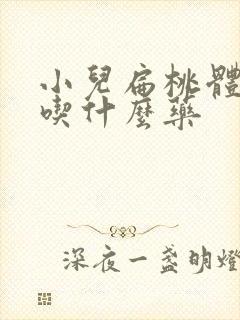 小兒扁桃體
喫什麼藥
深夜一盞明燈